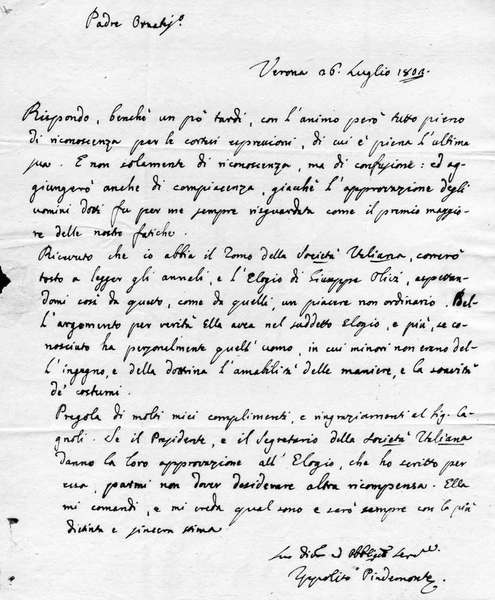 Padre Ornatis.º
Verona 26. Luglio 1803.
Rispondo, benchè un pò tardi, con l'animo però tutto pieno
di riconoscenza per le cortesi espressioni, di cui è piena l'ultima
sua. E non solamente di riconoscenza, ma di confusione: ed ag-
giungerò anche di compiacenza, giacchè l'approvazione degli
uomini dotti fu per me sempre risguardata come il premio maggio-
re delle nostre fatiche.
Ricevuto che io abbia il Tomo della Società Italiana, correrò
tosto a legger gli annali, e l'Elogio di Giuseppe Olivi, aspettan-
domi così da questo, come da quelli, un piacere non ordinario. Bel-
l'argomento per verità Ella avea nel suddetto Elogio, e più, se co-
nosciuto ha personalmente quell'uomo, in cui minori non erano del-
l'ingegno, e della dottrina l'amabilità delle maniere, e la soavità
de' costumi.
Pregola di molti miei complimenti, e ringraziamenti al Sig. Ca-
gnoli. Se il Presidente, e il Segretario della Società Italiana
danno la loro approvazione all'Elogio, che ho scritto per
essa, parmi non dover desiderare altra ricompensa. Ella
mi comandi, e mi creda qual sono e sarò sempre con la più
distinta e sincera stima
Suo Div. ed Obblig. Serv.
Ippolito Pindemonte.